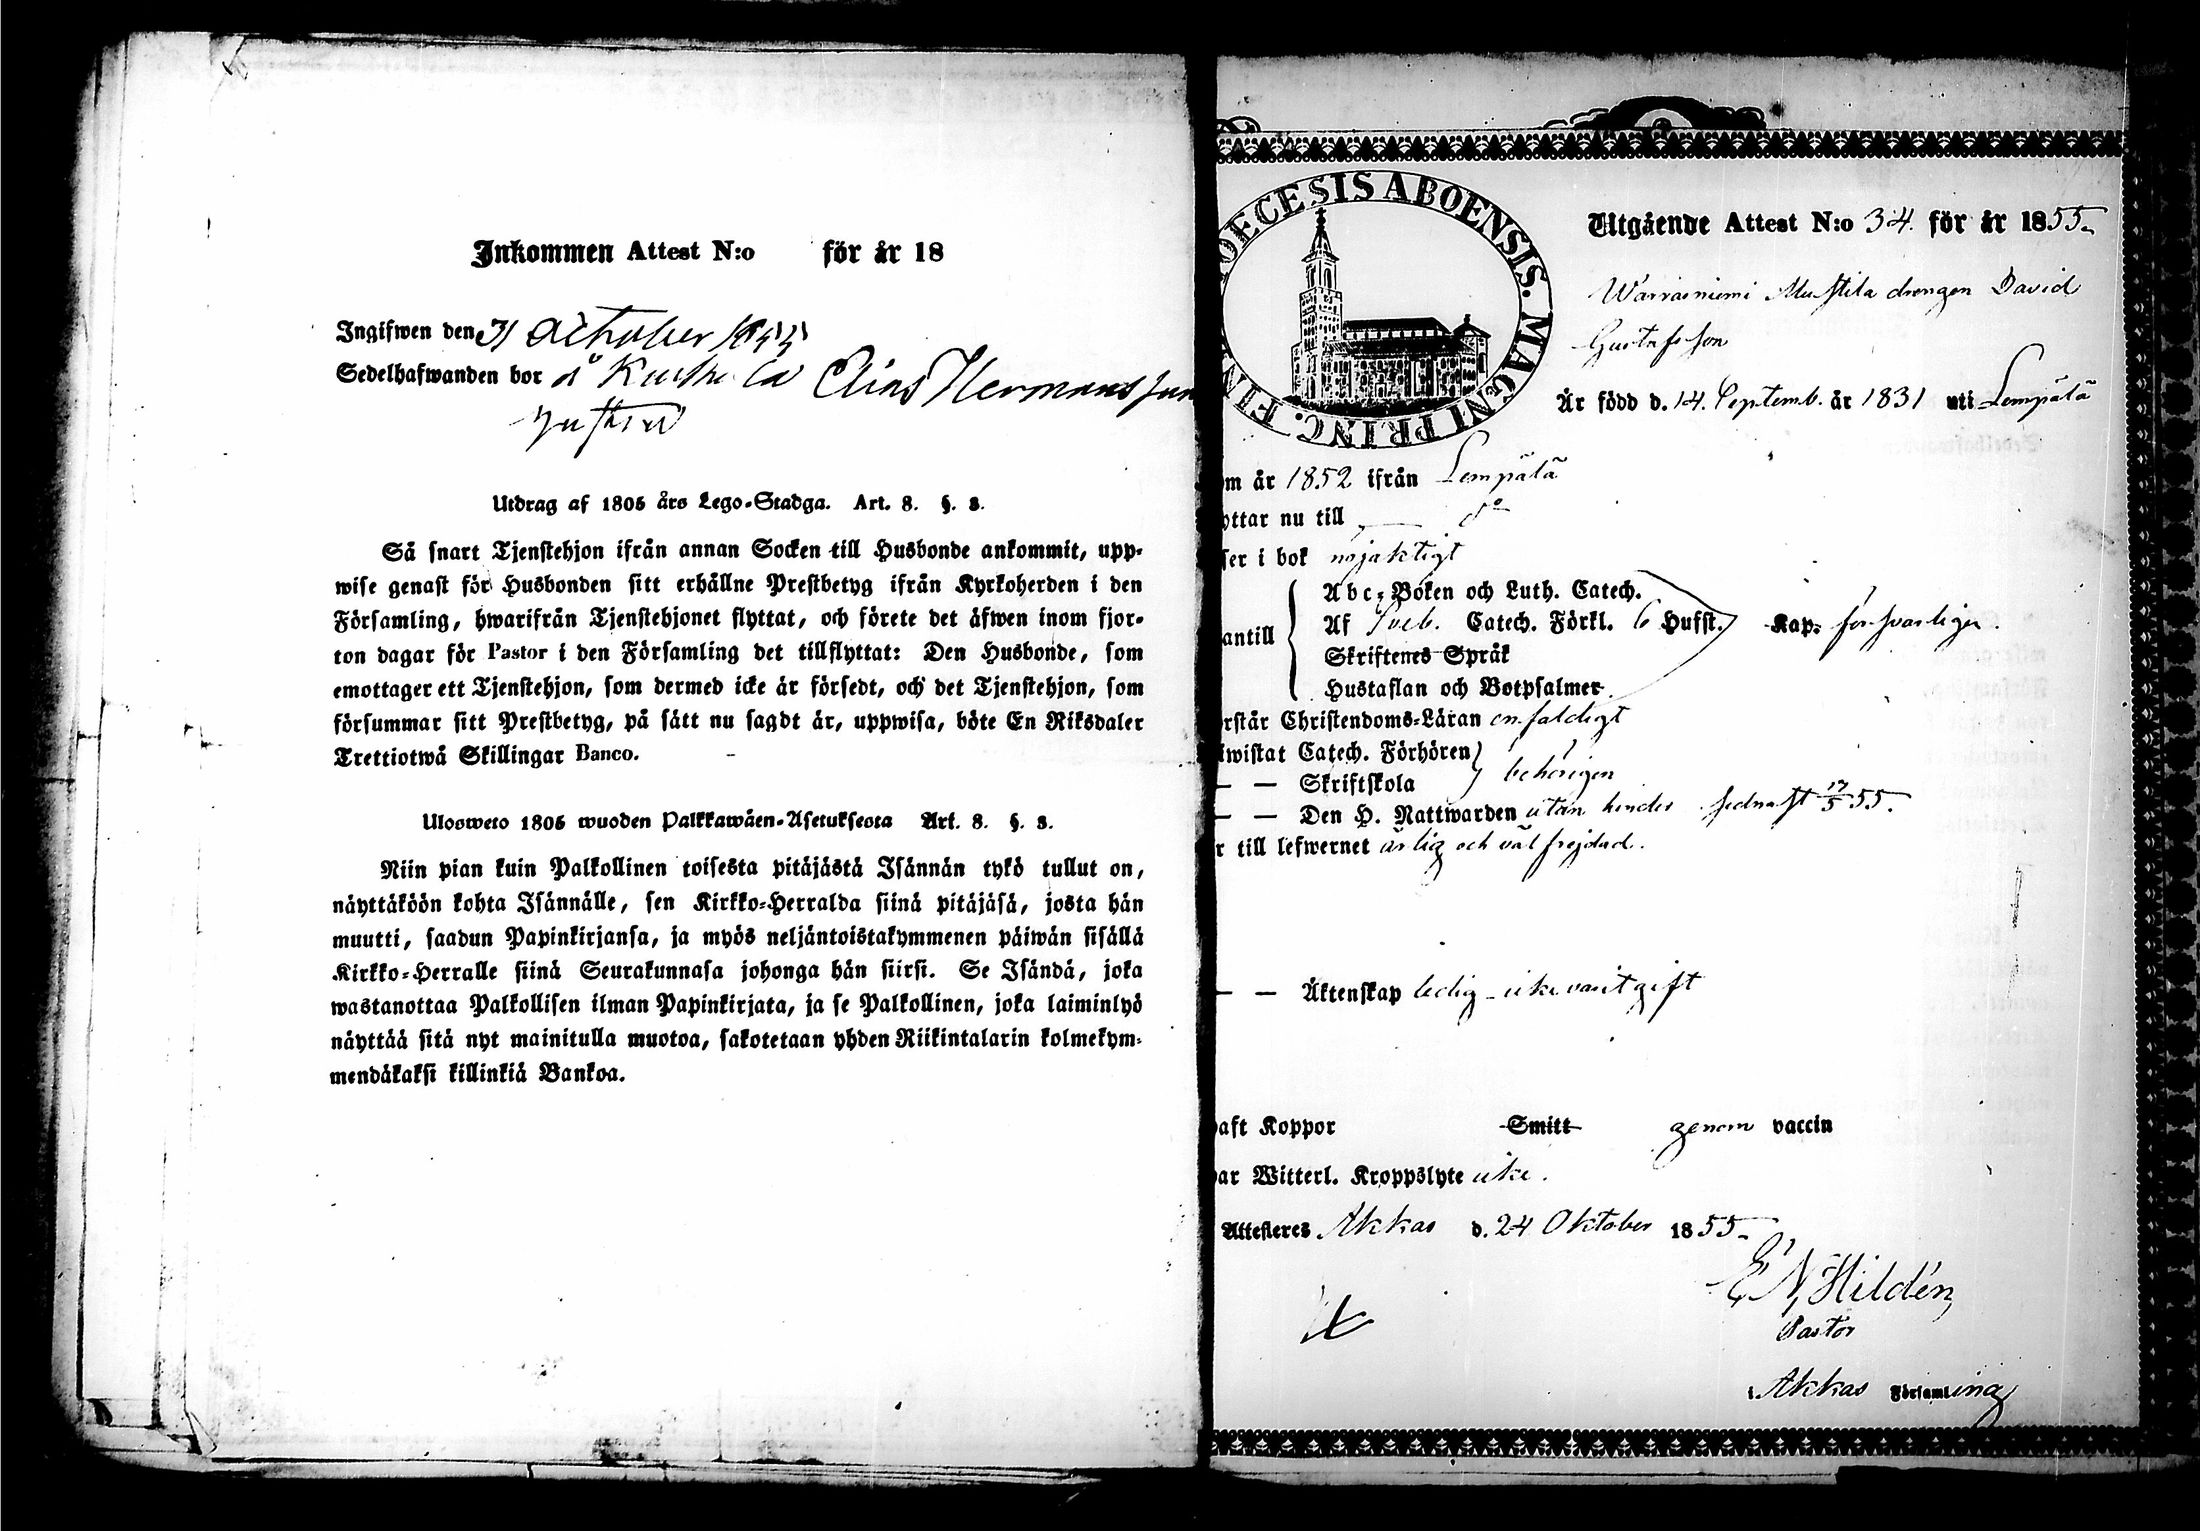 Inkommen Attest N:o för år 18
Ingifwen den 31 October 1855
Sedelhafwanden bor å Elias Hermansson
Utdrag af 1805 års Lego-Stadga. Art. 8. §. 3.
Så snart Tjenstehjon ifrån annan Socken till Husbonde ankommit, upp-
wise genast för Husbonden sitt erhållne Prestbetyg ifrån Kyrkoherden i den
Församling, hwarifrån Tjenstehjonet flyttat, och förete det äfwen inom fjor-
ton dagar för Pastor i den Församling det tillflyttat: Den Husbonde, som
emottager ett Tjenstehjon, som dermed icke är försedt, och det Tjenstehjon, som
försummar sitt Prestbetyg, på sätt nu sagdt är, uppwisa, böte En Riksdaler
Trettiotwå Skillingar Banco.
Ulosweto 1805 wuoden Palkkawäen-Asetuksesta Art. 8. §. 3.
Niin pian kuin Palkollinen toisesta pitäjästä Isännän tykö tullut on,
näyttäköön kohta Isännälle, sen Kirkko-Herralda siinä pitäjäsä, josta hän
muutti, saadun Papinkirjansa, ja myös neljäntoistakymmenen päiwän sisällä
Kirkko-Herralle siinä Seurakunnasa johonga hän siirsi. Se Isändä, joka
wastanottaa Palkollisen ilman Papinkirjata, ja se Palkollinen, joka laiminlyö
näyttää sitä nyt mainitulla muotoa, sakotetaan yhden Riikintalarin kolmekym-
mendäkaksi killinkiä Bankoa.
DIOECESIS ABOENSIS. MAGNI PRINC. FIN
Utgående Attest N:o 34. för år 1855.
Warrasniemi Mustila drengen David
Gustafsson
Är född d. 14. Septemb. år 1831 uti Lempälä
om år 1852 ifrån Lempälä
yttar nu till — d:o
ser i bok nöjaktigt
Abc-Boken och Luth. Catech.
antill Af Sveb. Catech. Förkl. 6 Hufst. Kap. försvarligen.
Skriftenes Språk
Hustaflan och Botpsalmer
rstår Christendoms-Läran enfaldigt
wistat Catech. Förhören
— — Skriftskola behörigen
— — Den H. Nattwarden utan hinder sednast 17/5 55.
r till lefwernet ärlig och väl frejdad.
— — Äktenskap ledig - icke varit gift
haft Koppor Smitt genom vaccin
har Witterl. Kroppslyte icke.
Attesteres Akkas d. 24 Oktober 1855.
E N Hildén
Pastor
i Akkas Församling